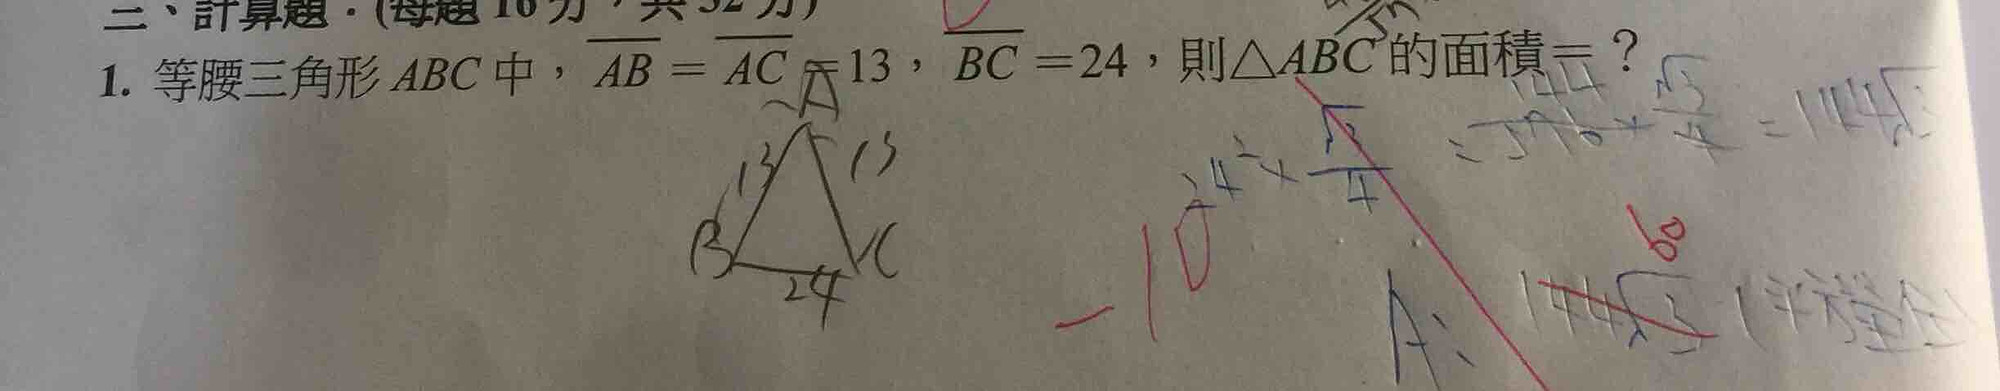 二、計算題：(每題 16 分，共 32 分)
1. 等腰三角形 ABC 中，AB = AC =13，BC =24，則△ABC 的面積=？
A
13 13
B C
24
24²×√3/4
=576×√3/4 =144√3
144
-10
60
A: 144√3 (平方單位)